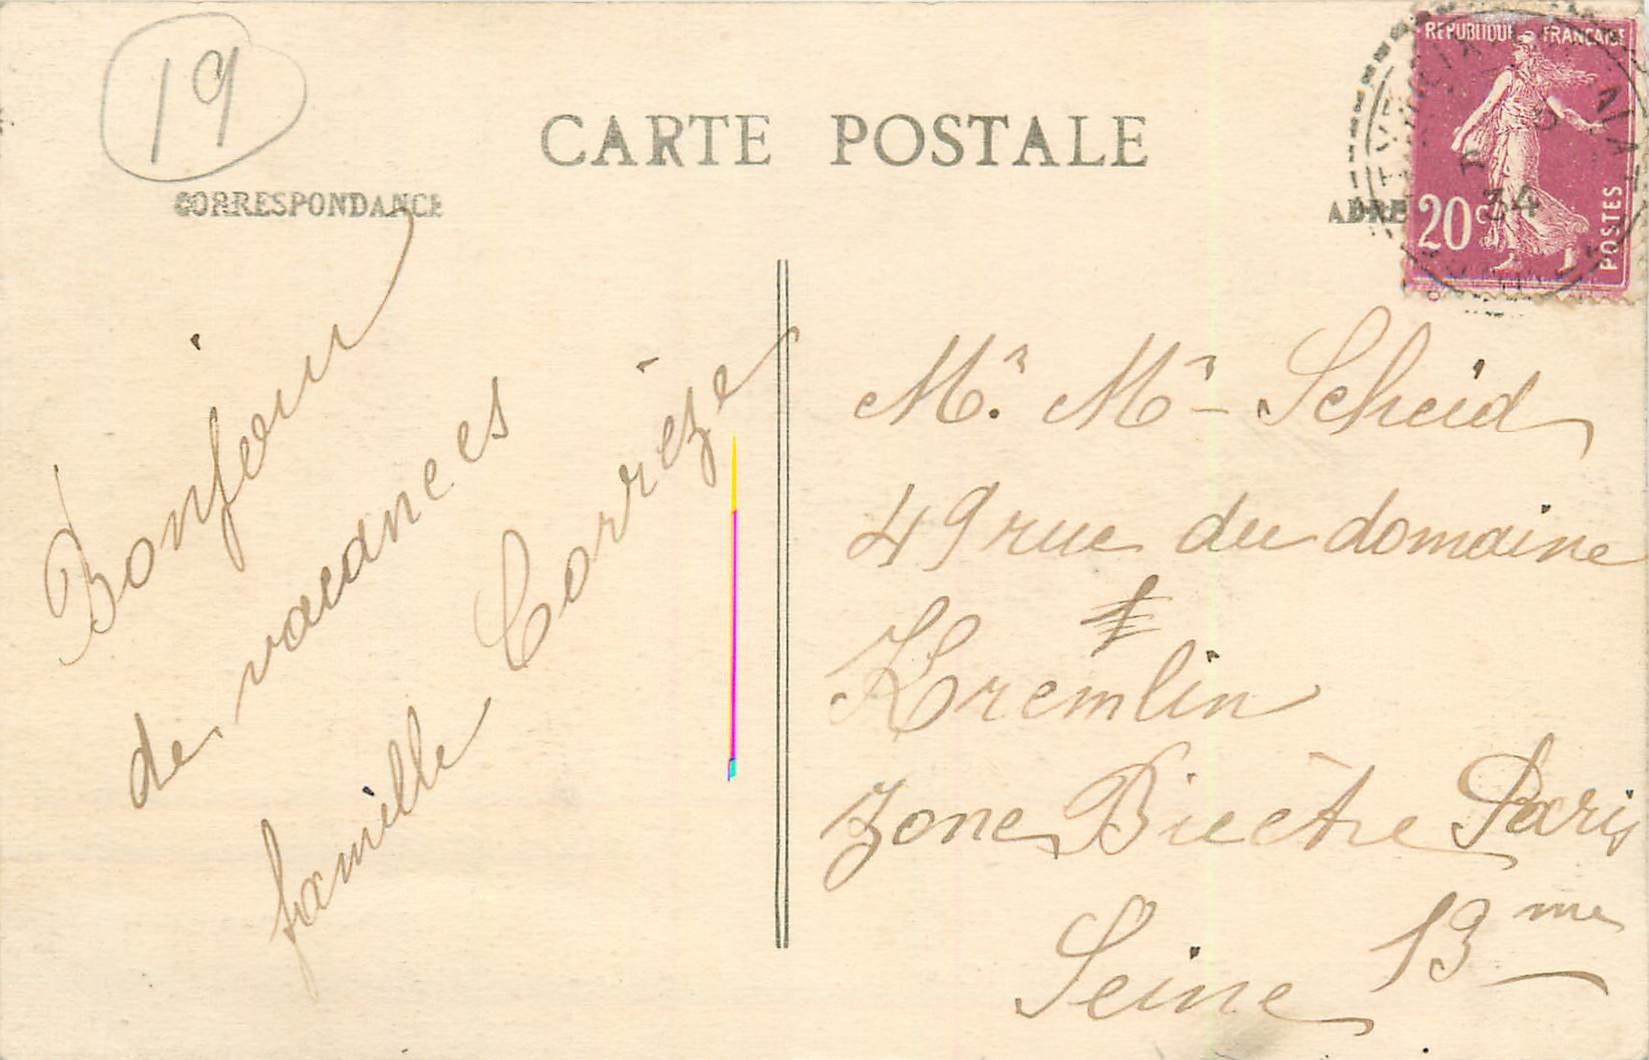 19
CARTE POSTALE
CORRESPONDANCE
ADRE
REPUBLIQUE FRANÇAISE
20c
POSTES
34
Bonjour
de vacances
famille Corrèze
Mr. Mr - Scheid
49 rue du domaine
Kremlin
zone Bicètre Paris
Seine 13me